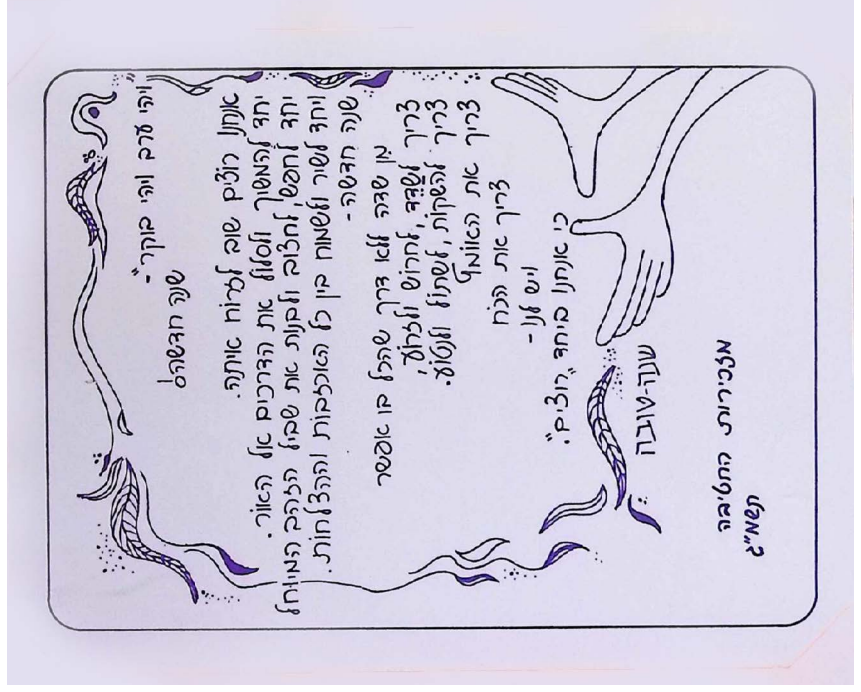 "ויהי ערב ויהי בוקר" -
שנה חדשה!
אנחנו רוצים שוב לצרות אותה.
יחד להמשיך לסלול את הדרכים אל האור.
יחד לחפש לחצוב ולבנות את שביל המיוחל
ויחד לשיר ולשמוח בין כל האכזבות וההצלחות.
שנה חדשה -
מין שדה ללא דרך שהכל בו אפשר
צריך לשדד, לחרוש ולזרוע,
צריך להשקות, לשתול ולנטוע.
צריך את האומץ
צריך את הכח
ויש לנו -
כי אנחנו ביחד "רוצים".
שנה-טובה